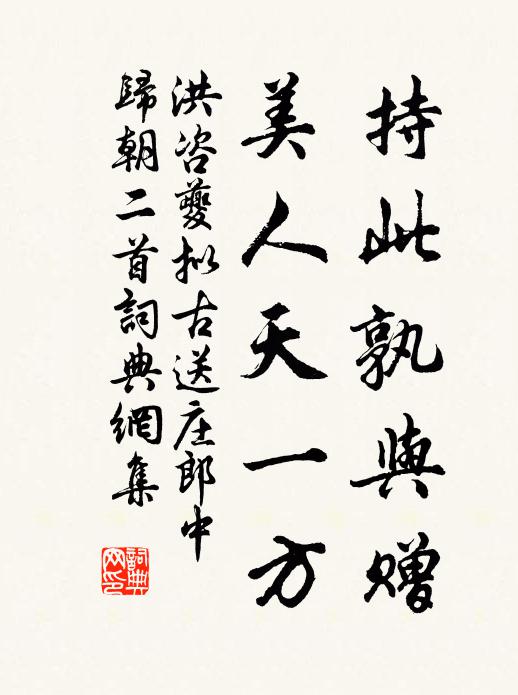 持此孰與贈
美人天一方
洪咨夔拟古送庄郎中
歸朝二首詞典網集
詞典
网印